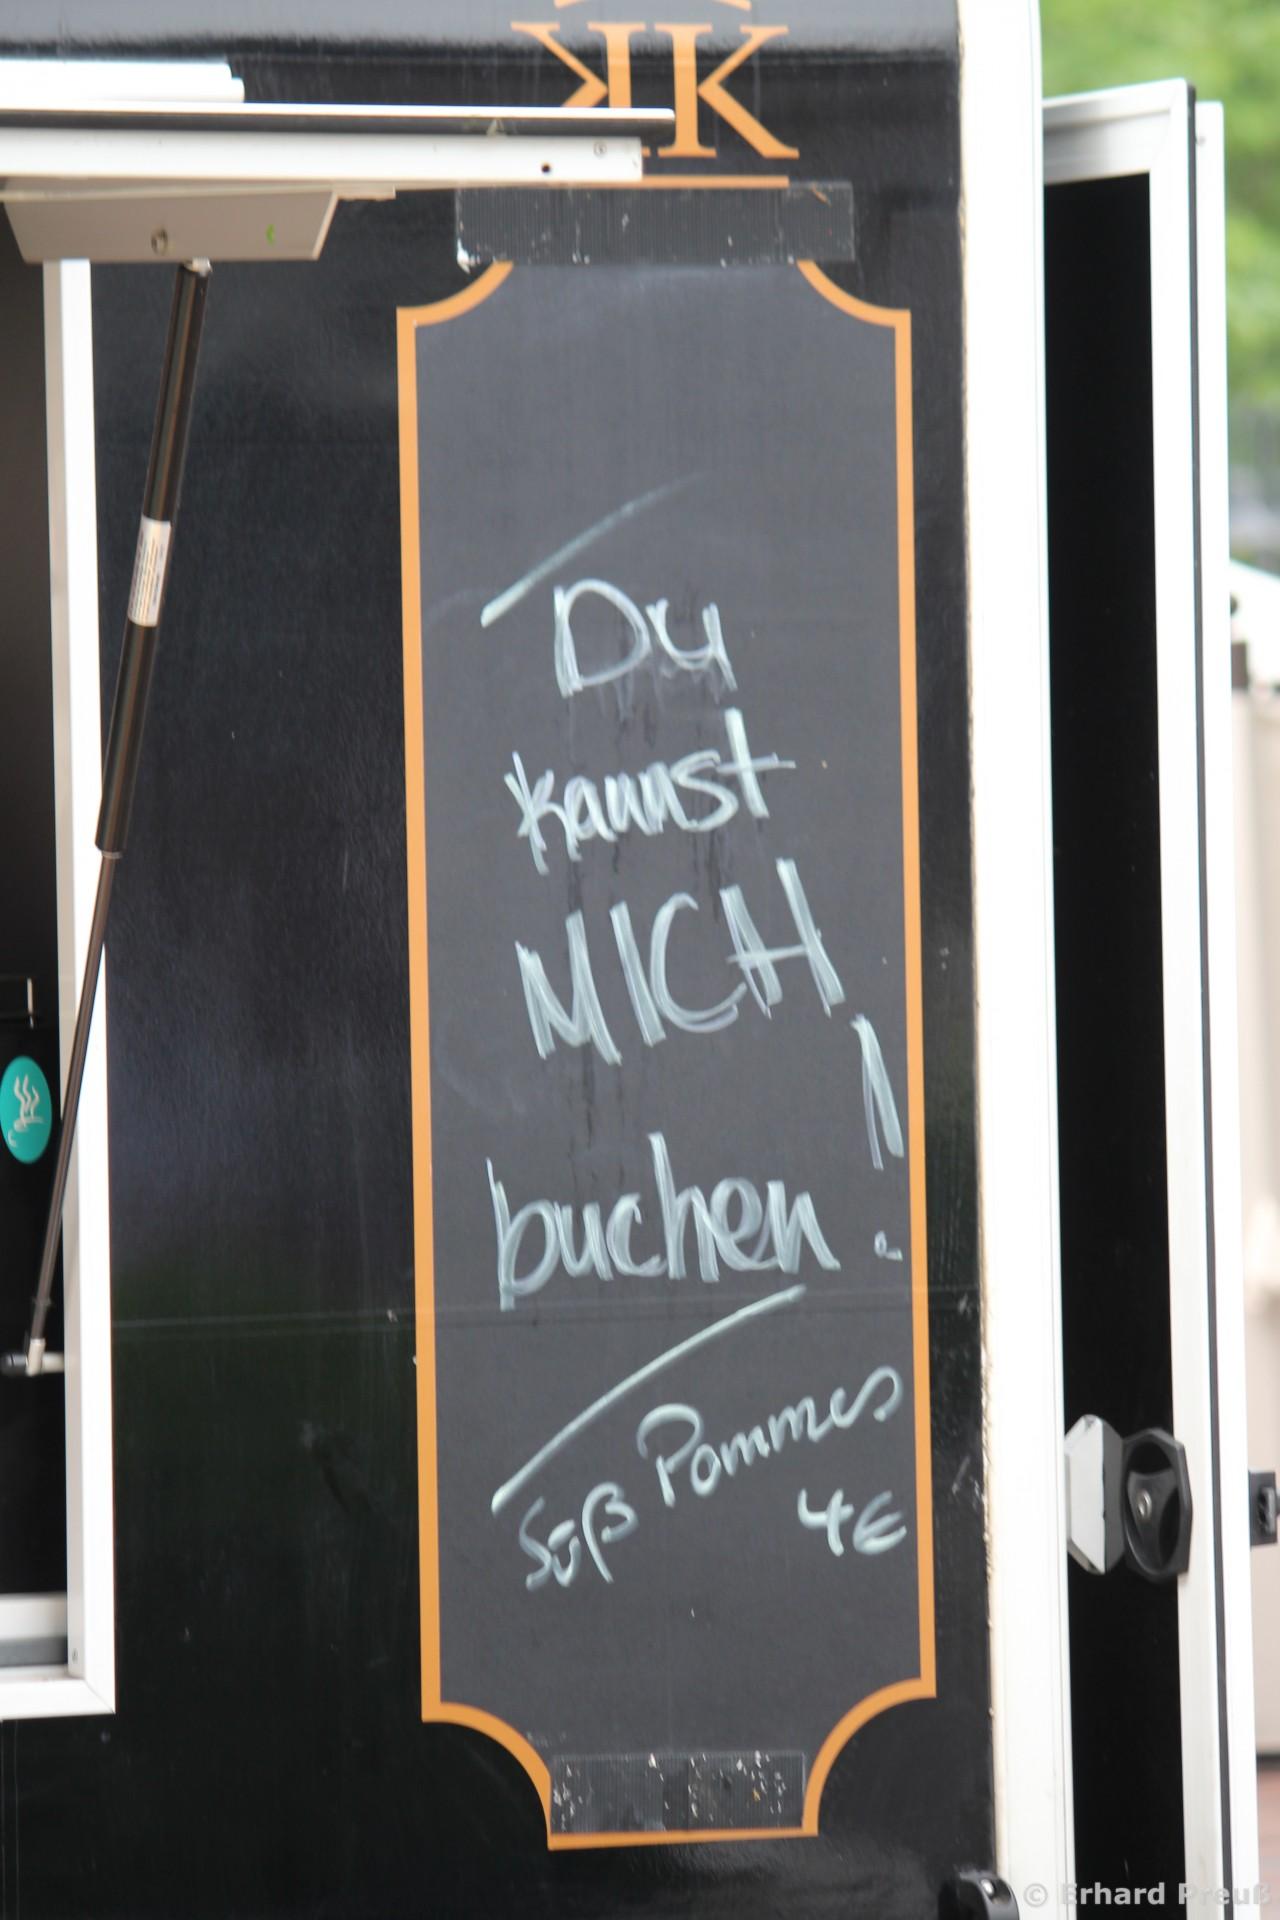 KK
Du
kannst
MICH
buchen!
Süß Pommes
4€
© Erhard Preuß